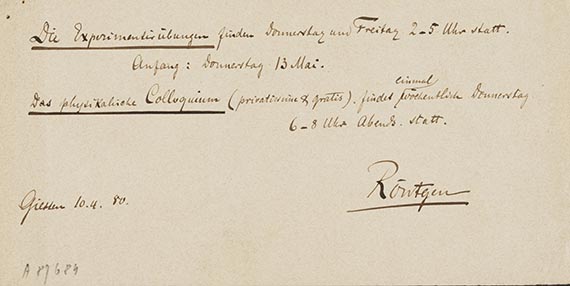 Die Experimentirübungen finden Donnerstag und Freitag 2–5 Uhr statt.
Anfang: Donnerstag 13 Mai.
einmal
Das physikalische Colloquium (privatissime & gratis). findet wöchentlich Donnerstag
6–8 Uhr Abends. statt.
Röntgen
Giessen 10.4. 80.
A 89684